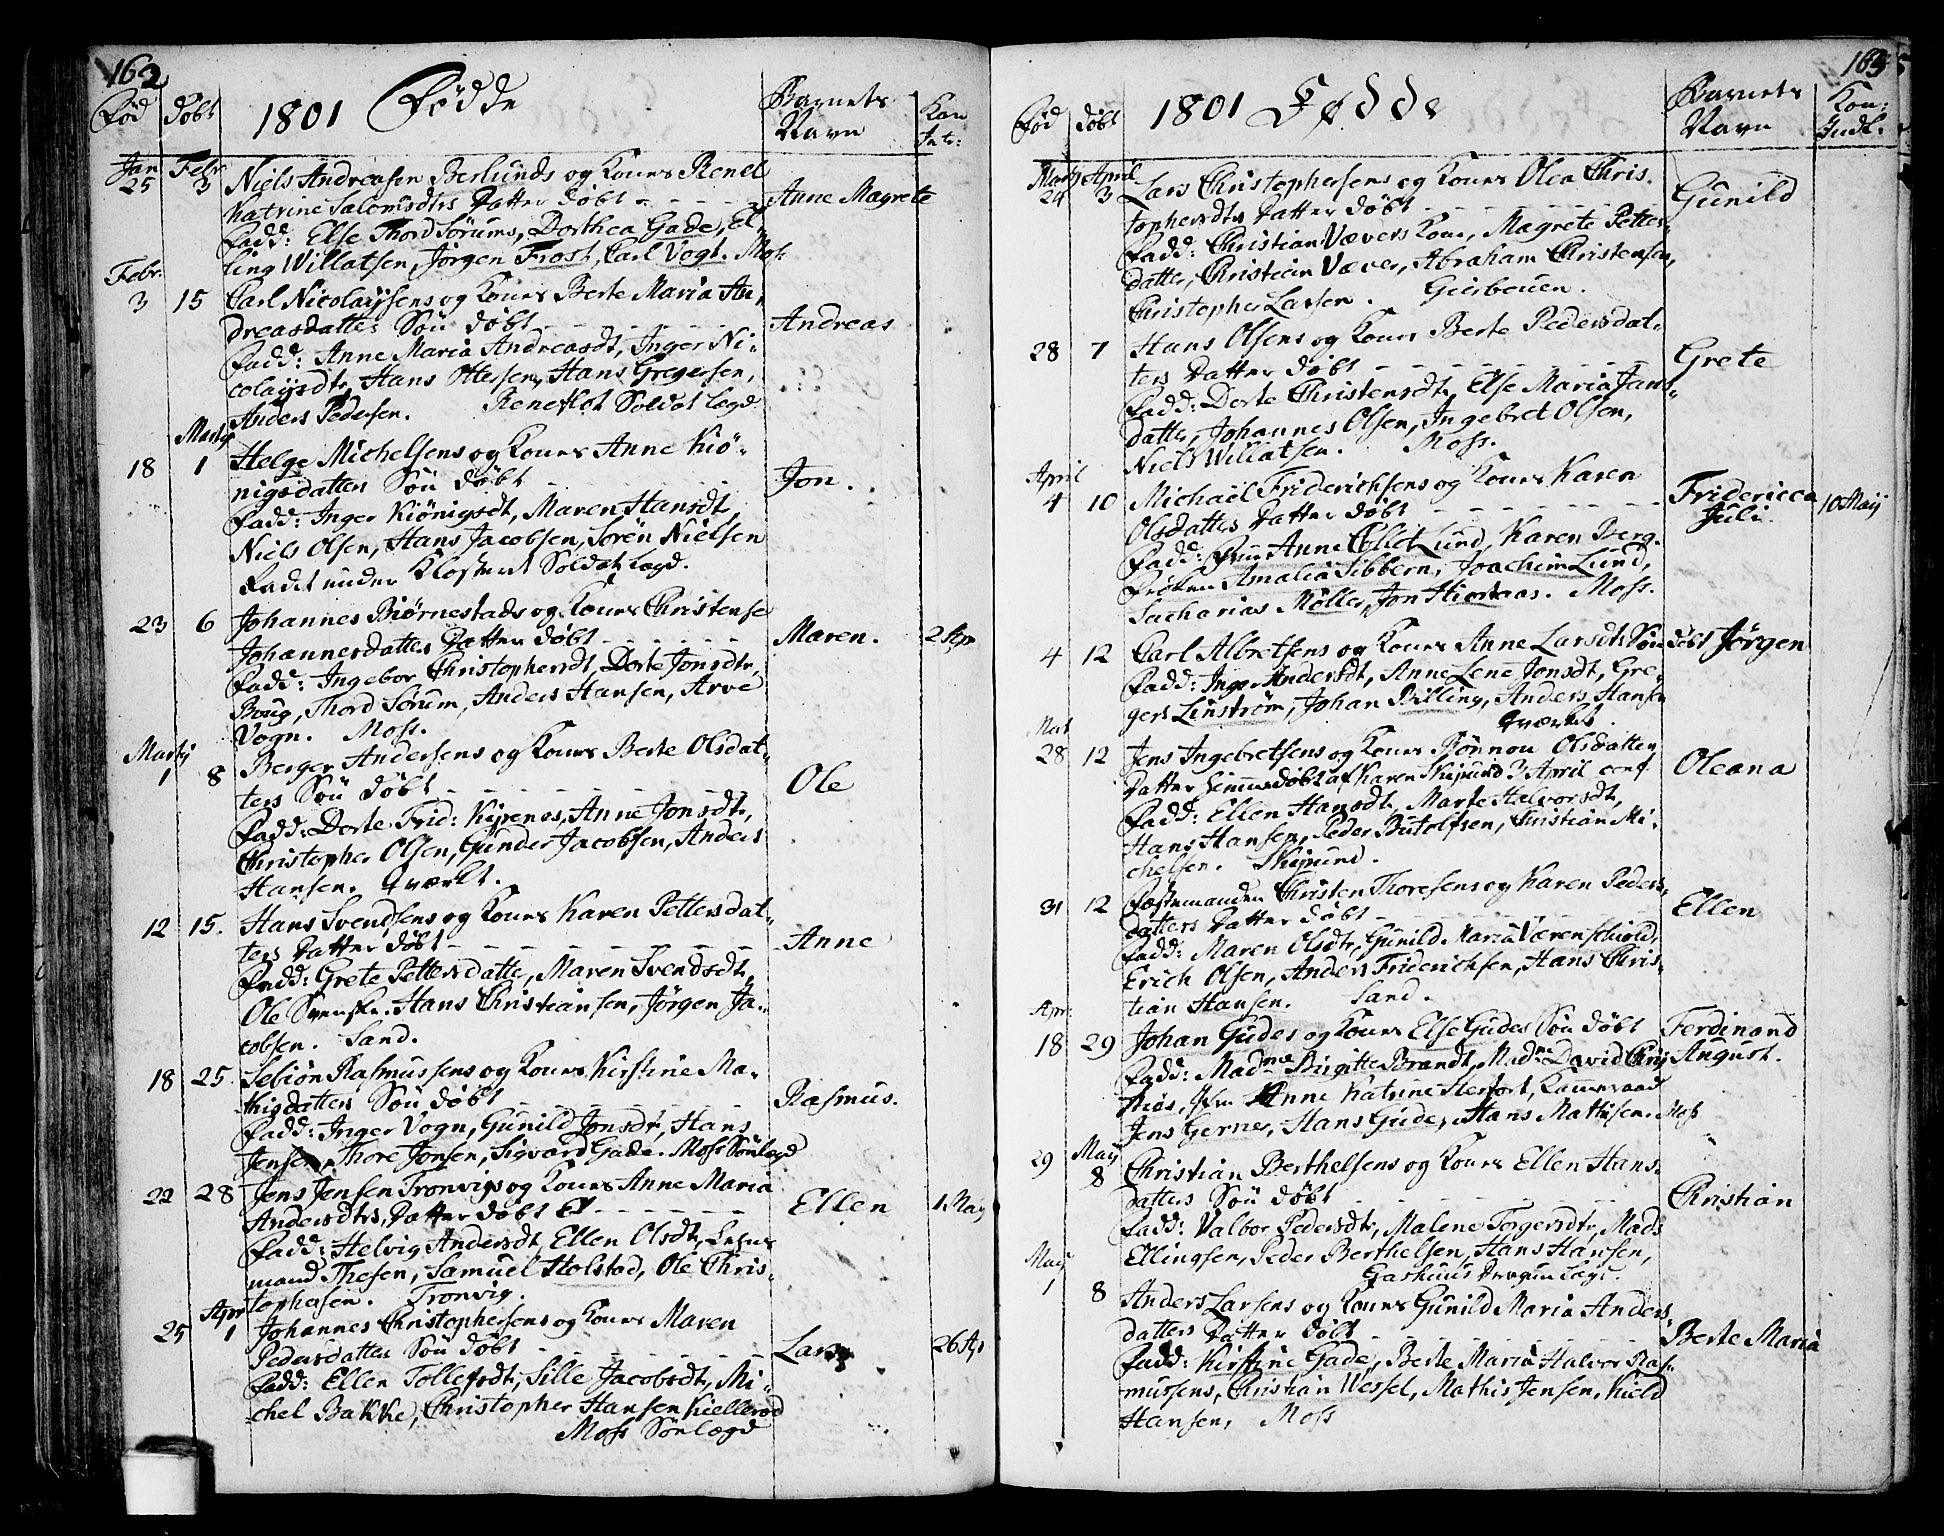 162
Fød Døbt 1801 Födde Barnets Navn Kon Intr:
Jan 25 Febr 3 Niels Andreasen Berlunds og Kones Renel
Katrine Salomsdtrs Datter døbt - - - Anne Magrete
Fadd: Else Thord Sørums, Dorthea Gade, El-
ling Willatsen, Jörgen Frost, Carl Vogt. Moss
Febr: 3 15 Carl Nicolaysens og Kones Berte Maria An-
dreasdatters Sön døbt - - - Andreas
Fadd: Anne Maria Andreasdt, Inger Ni-
colaysdtr, Hans Ottersen, Hans Gregersen,
Anders Pedersen. Reneflot Soldat Lægd
Martij
18 1 Helge Michelsens og Kones Anne Kiö-
nigsdatters Sön døbt - - - Jon.
Fadd: Inger Kiönigsdt, Maren Hansdt,
Niels Olsen, Hans Jacobsen, Sören Nielsen
Ladt under Klosteret Soldat Lægd.
23 6 Johannes Biörnestads og Kones Christense
Johannesdatters Datter døbt - - - Maren. 2 Apr
Fadd: Ingebor Christophersdt, Dorte Jonsdtr,
Boug, Thord Sörum, Anders Hansen, Arve
Vogn. Moss.
Martij 1 8 Berger Andersens og Kones Berte Olsdat-
ters Sön døbt - - - Ole
Fadd: Dorte Frid: Kipenes, Anne Jonsdt,
Christopher Olsen, Gunder Jacobsen, Anders
Hansen. Qværkt.
12 15. Hans Svendsens og Kones Karen Pettersdat-
ters Datter døbt - - - Anne
Fadd: Grete Pettersdatte, Maren Svendsdt,
Ole Svenske. Hans Christiansen, Jörgen Ja-
cobsen. Sand.
18 25. Sebiön Rasmussens og Kones Kirstine Ma-
thisdatters Sön døbt - - - Rasmus.
Fadd: Inger Vogn, Gunild Jonsdt, Hans
Jensen, Thore Jonsen, Sigvard Gade. Moss Sönlægd
22 28 Jens Jensen Tronvigs og Kones Anne Maria
Andersdtrs Datter døbt - - - Ellen 1 Maij
Fadd: Helvig Andersdt, Ellen Olsdt,
mand Thesen, Samuel Holstad, Ole Chris-
tophersen. Tronvig.
25 Apr 1 Johannes Christophersens og Kones Maren
Pedersdatters Sön døbt - - - Lars 26 Apr
Fadd: Ellen Tollefsdt, Sille Jacobsdt, Mi-
chel Bakke, Christopher Hansen Kiellerød
Moss Sönlægd
163
Fød døbt 1801 Fødde Barnets Navn Kon: Indl:
Martij 24 April 3 Lars Christophersens og Kones Olea Chris-
tophersdtrs Datter døbt - - - Gunild
Fadd: Christian Vævers Kone, Magrete Petters-
datter, Christian Væver, Abraham Christensen,
Christopher Larsen.
28 7 Hans Olsens og Kones Berte Pedersdat-
ters Datter døbt - - - Grete
Fadd: Dorte Christensdt, Else Maria Jans-
datte, Johannes Olsen, Ingebret Olsen,
Niels Willatsen. Moss.
April 4 10 Michael Friderichsens og Kones Karen
Olsdatters Datter døbt - - - Fridericca Juli. 10 Maij
Fadd: Frue Anne Collet Lund, Karen Berg.
Frøken Amalia Sibbern, Joachim Lund,
Sacharias Möller, Jon Hiortaas. Moss.
4 12 Carl Albretsens og Kones Anne Larsdts Sön døbt Jørgen
Fadd: Inger Andersdt, Anne Lene Jonsdt, Gre-
gers Linström, Johan Billing, Anders Hansen
Qværkt.
Mart 28 12 Jens Ingebretsens og Kones Rönnou Olsdatters
Datter hiemmedøbt af Karen Skipund 3 April conf Oleana
Fadd: Ellen Hansdt, Marte Halvorsdt,
Hans Hansen, Peder Butolfsen, Christian Mi-
chelsen. Skipund.
31 12 Fæstemanden Christen Thoresens og Karen Peders-
datters Datter døbt - - - Ellen
Fadd: Maren Olsdtr, Gunild Maria Værenschiold,
Erich Olsen, Anders Friderichsen, Hans Chris-
tian Hansen. Sand.
Apr: 18 29 Johan Gudes og Kones Else Gudes Sön døbt Ferdinand
Fadd: Madme Birgitte Brandt, Madme David Chrys August.
Thiös, Anne Katrine Herfort, Kammeraad
Jens Gerner, Hans Gude, Hans Mathisen. Moss
29 Maij 8 Christian Berthelsens og Kones Ellen Hans-
datters Sön døbt - - - Christian
Fadd: Valbor Pedersdtr, Malene Torgersdtr, Mads
Ellingsen, Peder Berthelsen, Hans Hansen,
Gashuus Dragun Lægd.
Maij 1 8 Anders Larsens og Kones Gunild Maria Anders-
datters Datter døbt - - - Berte Maria
Fadd: Kirstine Gade, Berte Maria Halvor Ras-
mussens, Christian Wessel, Mathis Jensen, Kield
Hansen, Moss